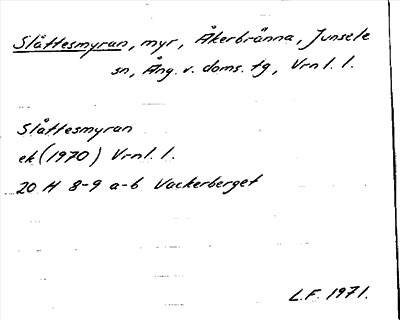 Slåttesmyran, myr, Åkerbränna, Junsele
sn, Ång. v. doms. tg, Vrnl. l.
Slåttesmyran
ek (1970) Vrnl. l.
20 H 8-9 a-b Vackerberget
L.F. 1971.